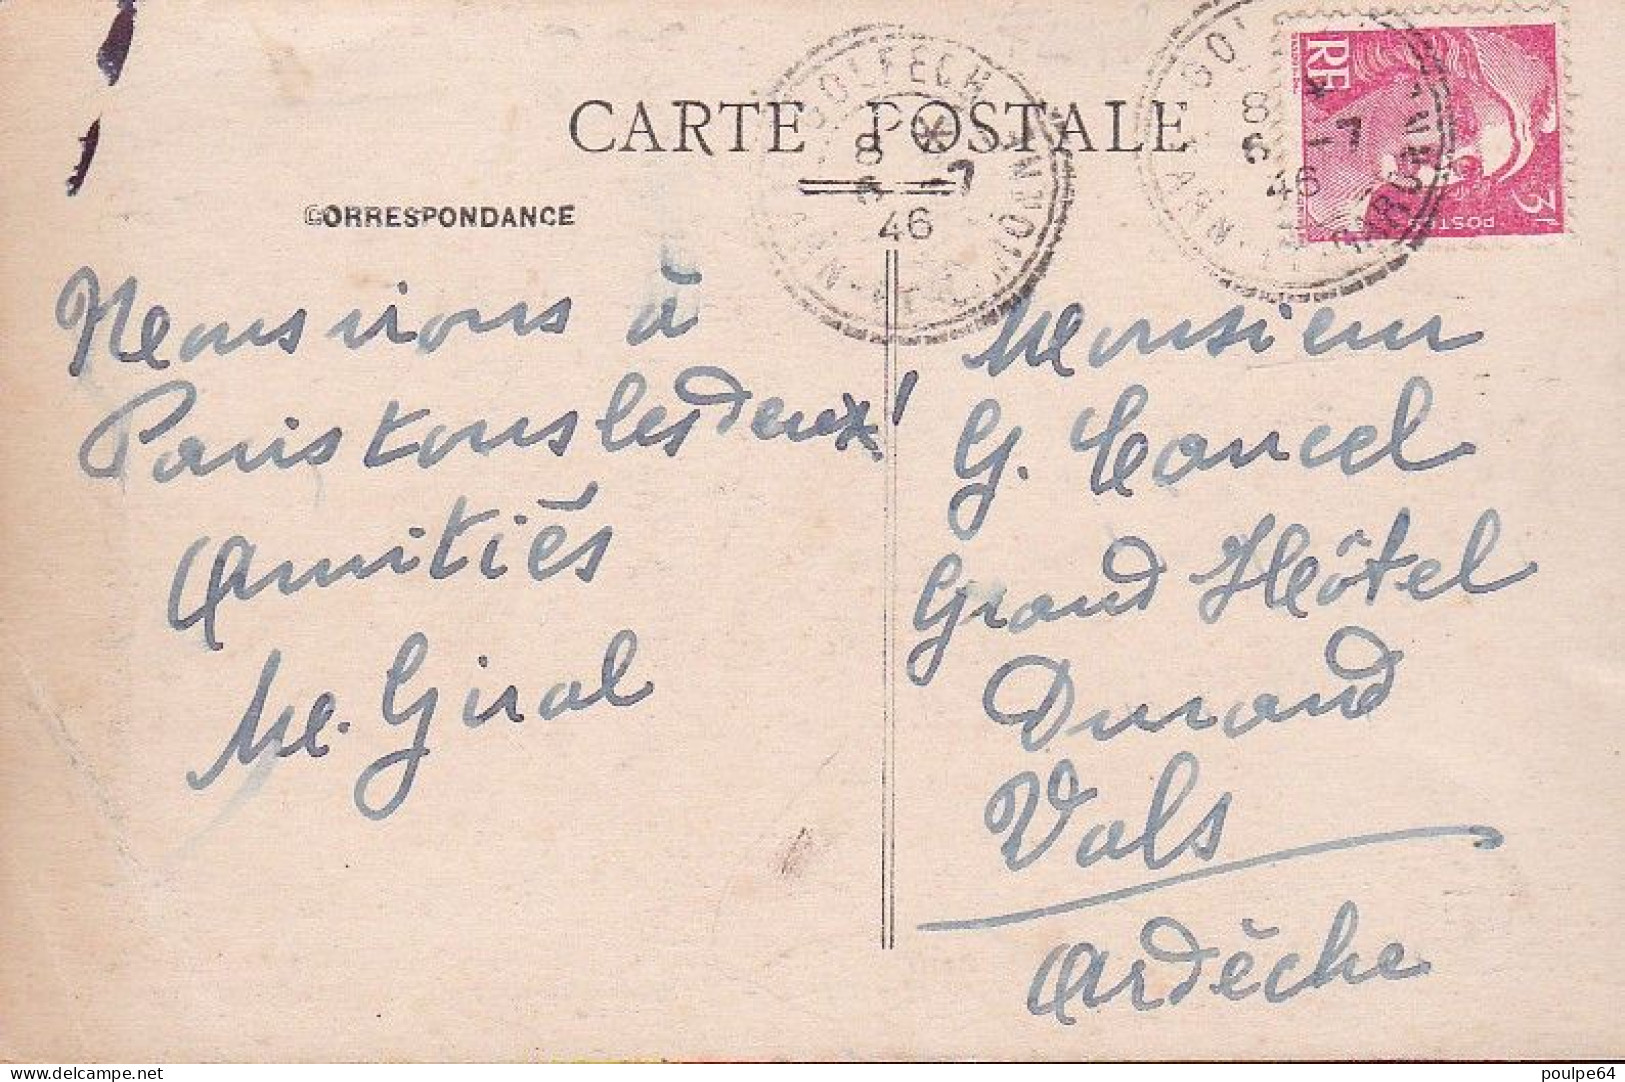 CARTE POSTALE
CORRESPONDANCE
GOLFECH
8 *
6 -7
46
TARN-ET-GARONNE
8 *
6 -7
46
RF
POSTES
3F
Nous irons à
Paris tous les deux !
Amitiés
Me. Giral
Monsieur
G. Cancel
Grand Hôtel
Durand
Vals
Ardèche
delcampe.net
poulpe64